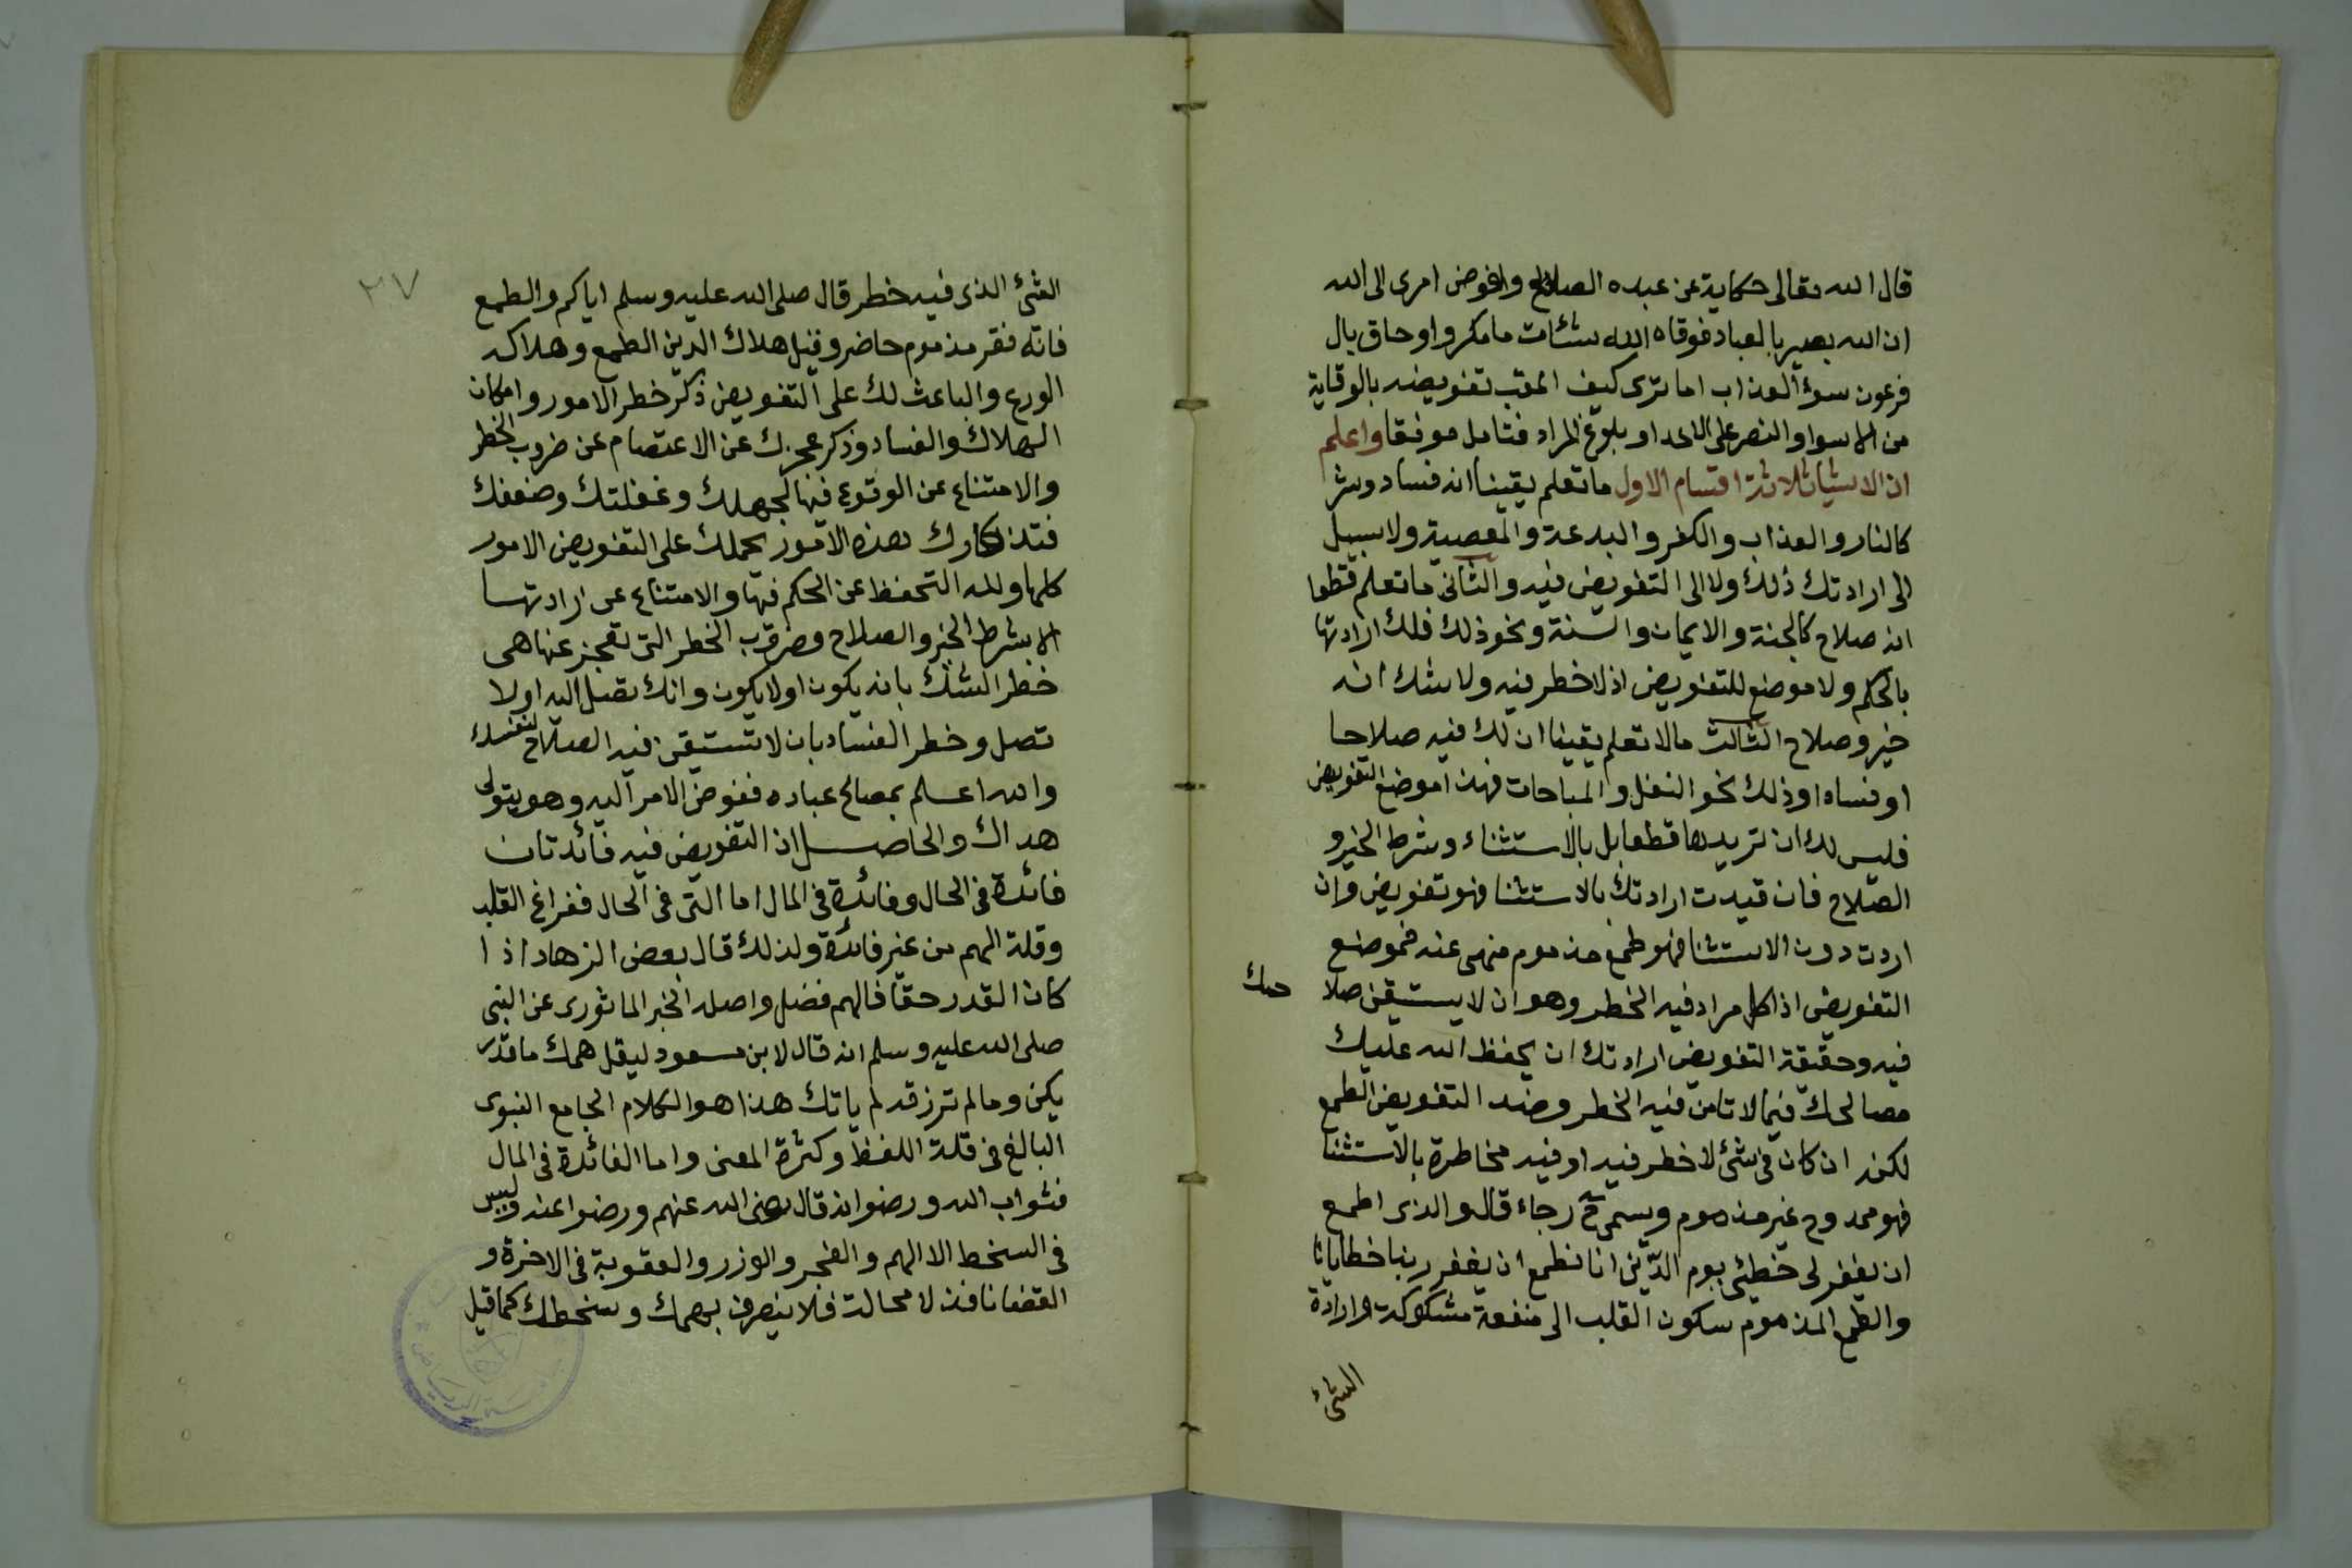 قال الله تعالى حكاية عن عبده الصالح وافوض امرى الى الله
ان الله بصير بالعباد فوقاه الله سيئات ما مكروا وحاق بال
فرعون سوء العذاب اما ترى كيف اعقب تفويضه بالوقاية
من الاسوا والنصر على الاعدا وبلوغ المراد فتامل موفقا واعلم
ان الاشيا ثلاثة اقسام الاول ما تعلم يقينا انه فساد وشر
كالنار والعذاب والكفر والبدعة والمعصية ولا سبيل
الى ارادتك ذلك ولا الى التفويض فيه والثانى ما تعلم قطعا
انه صلاح كالجنة والايمان والسنة ونحو ذلك فلك ارادتها
بالحكم ولا موضع للتفويض اذ لا خطر فيه ولا شك انه
خير وصلاح الثالث ما لا تعلم يقينا ان لك فيه صلاحا
او فسادا وذلك نحو النفل والمباحات فهذا موضع التفويض
فليس لك ان تريدها قطعا بل بالاستثناء وشرط الخير و
الصلاح فان قيدت ارادتك بالاستثنا فهو تفويض وان
اردت دون الاستثنا فهو طمع مذموم منهى عنه فموضع
التفويض اذا كل مراد فيه الخطر وهو ان لا يستيقن صلا حك
فيه وحقيقة التفويض ارادتك ان يحفظ الله عليك
مصالحك فيما لا تامن فيه الخطر وضد التفويض الطمع
لكنه ان كان فى شئ لا خطر فيه او فيه مخاطرة بالاستثنا
فهو ممدوح غير مذموم ويسمى ح رجاء قال والذى اطمع
ان يغفر لى خطيئتى يوم الدين انا نطمع ان يغفر ربنا خطايانا
والطمع المذموم سكون القلب الى منفعة مشكوكة وارادة
الشئ
٢٧
الشئ الذى فيه خطر قال صلى الله عليه وسلم اياكم والطمع
فانه فقر مذموم حاضر وقيل هلاك الدين الطمع وهلاكه
الورع والباعث لك على التفويض ذكر خطر الامور وامكان
الهلاك والفساد وذكر عجزك عن الاعتصام عن ضروب الخطر
والامتناع عن الوقوع فيها لجهلك وغفلتك وضعفك
بهذه الامور يحملك على التفويض الامور
كلها ولله التحفظ عن الحكم فيها والامتناع عن ارادتها
الا بشرط الخير والصلاح وضروب الخطر التى تعجز عنها هى
خطر الشك بانه يكون او لا يكون وانك تصل اليه او لا
تصل وخطر الفساد بان لا تستيقن فيه الصلاح لنفسك
والله اعلم بمصالح عباده ففوض الامر اليه وهو يتولى
هداك والحاصل ان التفويض فيه فائدتان
فائدة فى الحال وفائدة فى المال اما التى فى الحال ففراغ القلب
وقلة الهم من غير فائدة ولذلك قال بعض الزهاد اذا
كان القدر حقا فالهم فضل واصله الخبر الماثورى عن النبى
صلى الله عليه وسلم انه قال لابن مسعود ليقل همك ما قدر
يكن وما لم ترزقه لم ياتك هذا هو الكلام الجامع النبوى
البالغ فى قلة اللفظ وكثرة المعنى واما الفائدة فى المال
فثواب الله ورضوانه قال رضى الله عنهم ورضوا عنه وليس
فى السخط الا الهم والضجر والوزر والعقوبة فى الاخرة و
القضا نافذ لا محالة فلا ينصرف بهمك وسخطك كما قيل